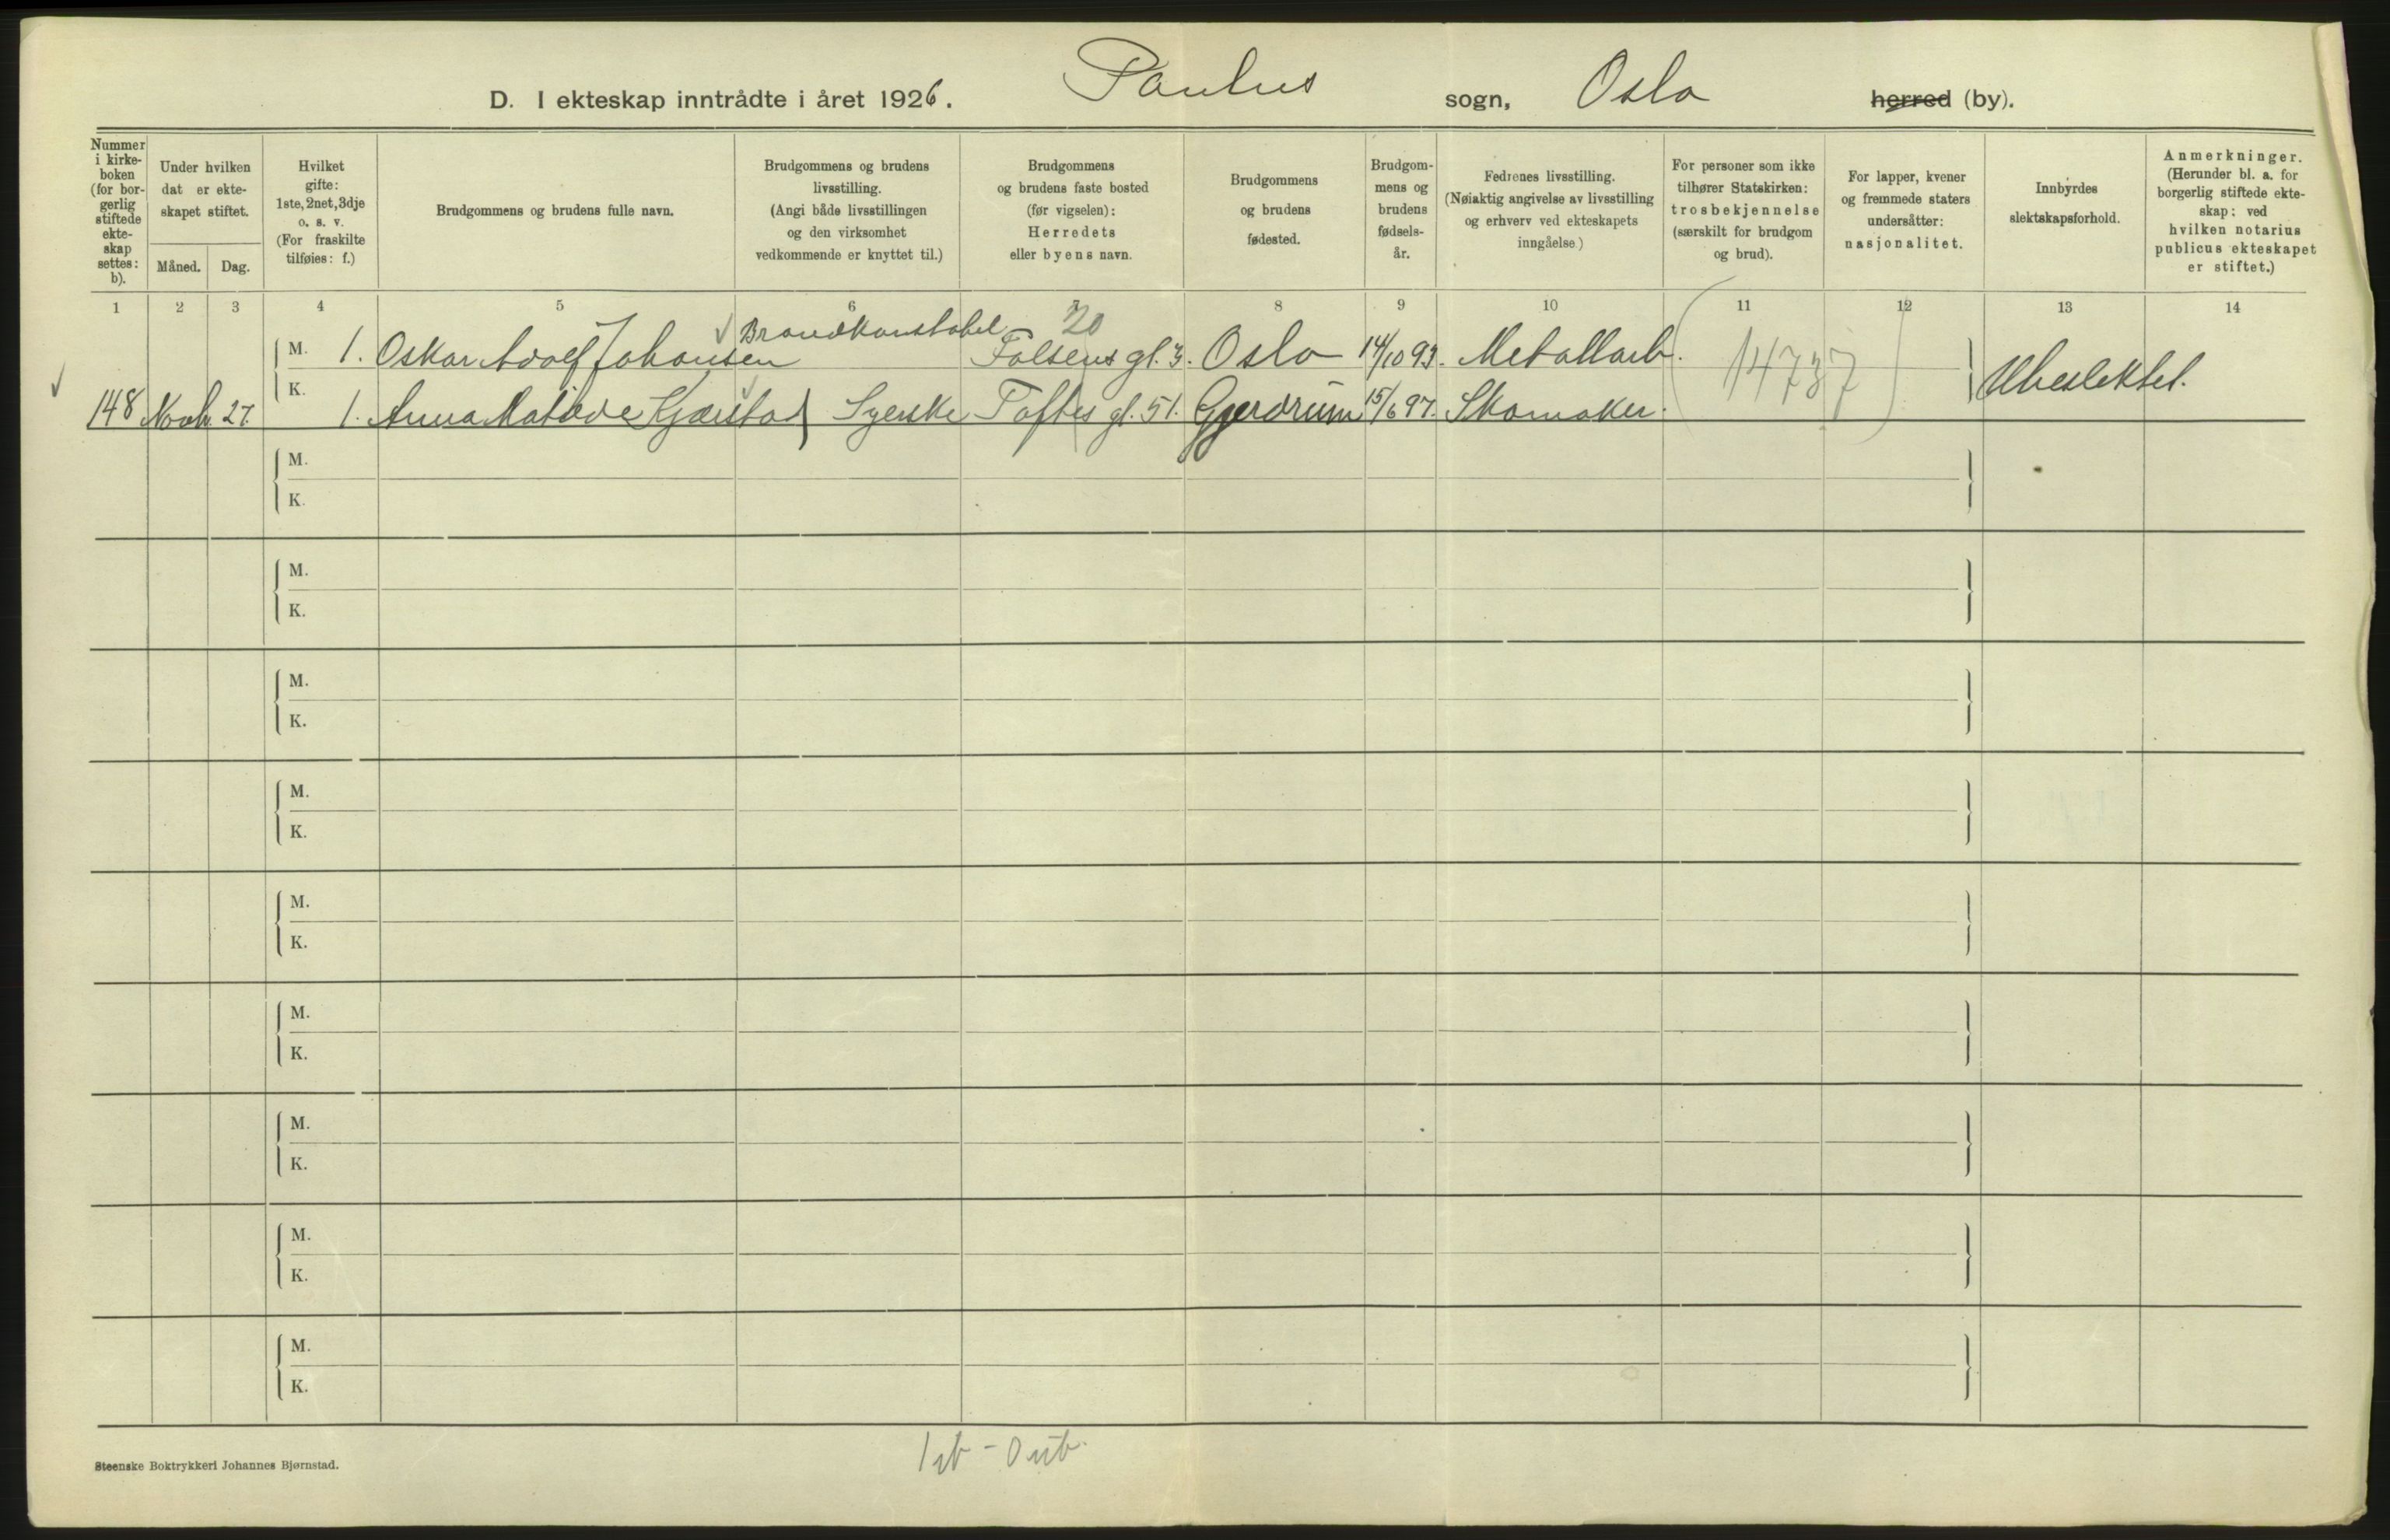 D. I ekteskap inntrådte i året 1926. Paulus sogn, Oslo herred (by).
Nummer i kirkeboken (for borgerlig stiftede ekteskap settes: b).
Under hvilken dat er ekteskapet stiftet.
Måned. Dag.
Hvilket gifte: 1ste, 2net, 3dje o. s. v. (For fraskilte tilføies: f.)
Brudgommens og brudens fulle navn.
Brudgommens og brudens livsstilling. (Angi både livsstillingen og den virksomhet vedkommende er knyttet til.)
Brudgommens og brudens faste bosted (før vigselen): Herredets eller byens navn.
Brudgommens og brudens fødested.
Brudgommens og brudens fødselsår.
Fedrenes livsstilling. (Nøiaktig angivelse av livsstilling og erhverv ved ekteskapets inngåelse)
For personer som ikke tilhører Statskirken: trosbekjennelse (særskilt for brudgom og brud).
For lapper, kvener og fremmede staters undersåtter: nasjonalitet.
Innbyrdes slektskapsforhold.
Anmerkninger. (Herunder bl. a. for borgerlig stiftede ekteskap: ved hvilken notarius publicus ekteskapet er stiftet.)
1 2 3 4 5 6 7 8 9 10 11 12 13 14
20
M. 1. Oskar Adolf Johansen Brandkonstabel Falsens gt. 3. Oslo 14/10 93. Metallarb. (14737) Ubeslektet.
148 Novb. 27. K. 1. Anna Matilde Kjærstad Syerske Toftes gt. 51. Gjerdrum 15/6 97. Skomaker.
M.
K.
M.
K.
M.
K.
M.
K.
M.
K.
M.
K.
M.
K.
M.
K.
M.
K.
Steenske Boktrykkeri Johannes Bjørnstad.